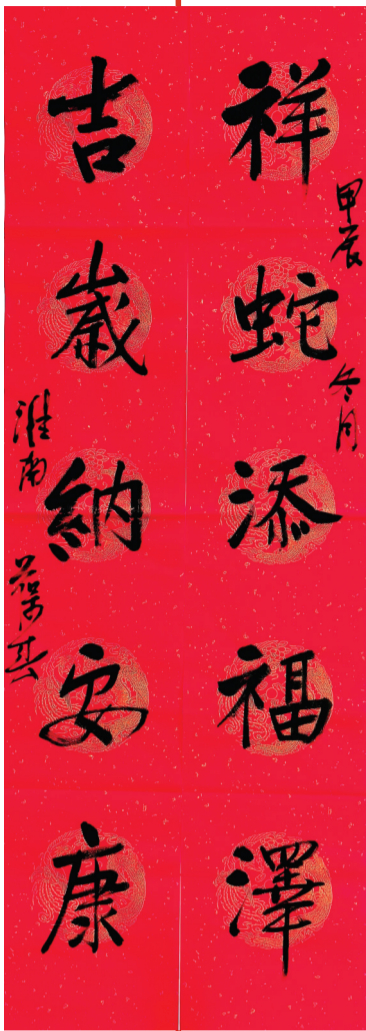 祥蛇添福澤
甲辰冬月
吉歲納安康
淮南